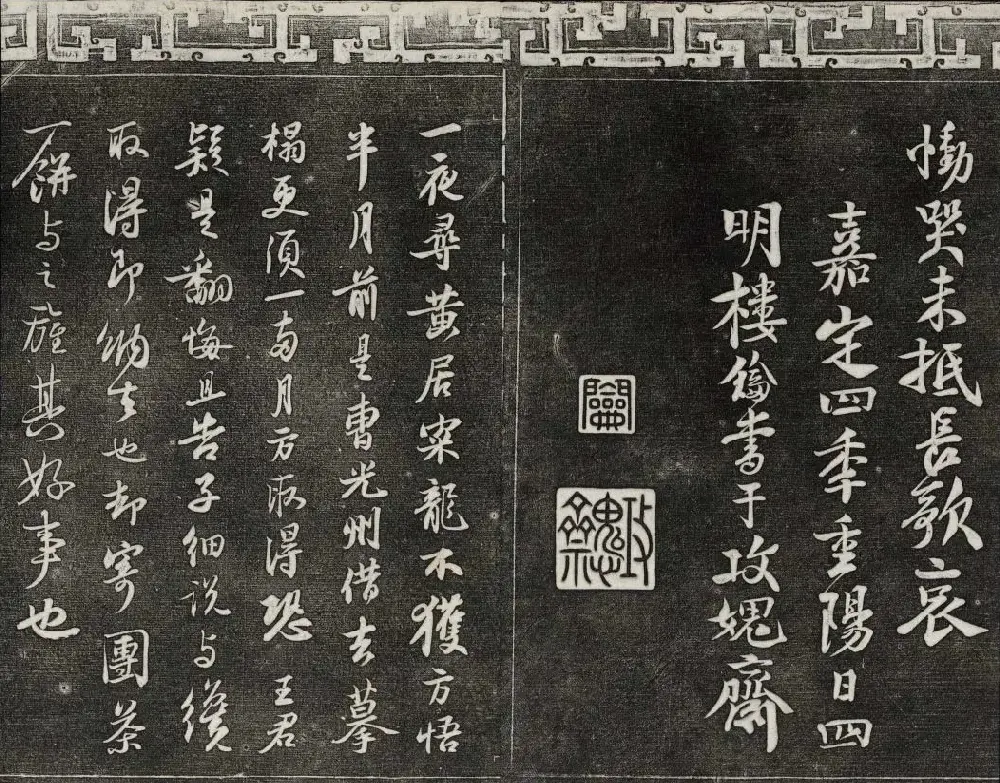 慟哭未抵長歌哀
嘉定四秊重陽日四
明樓鑰書于攻媿齋
攻媿齋
一夜尋黃居寀龍不獲方悟
半月前是曹光州借去摹
搨更須一兩月方取得恐王君
疑是翻悔且告子細説与纔
取得即納去也却寄團茶
一餅与之旌其好事也